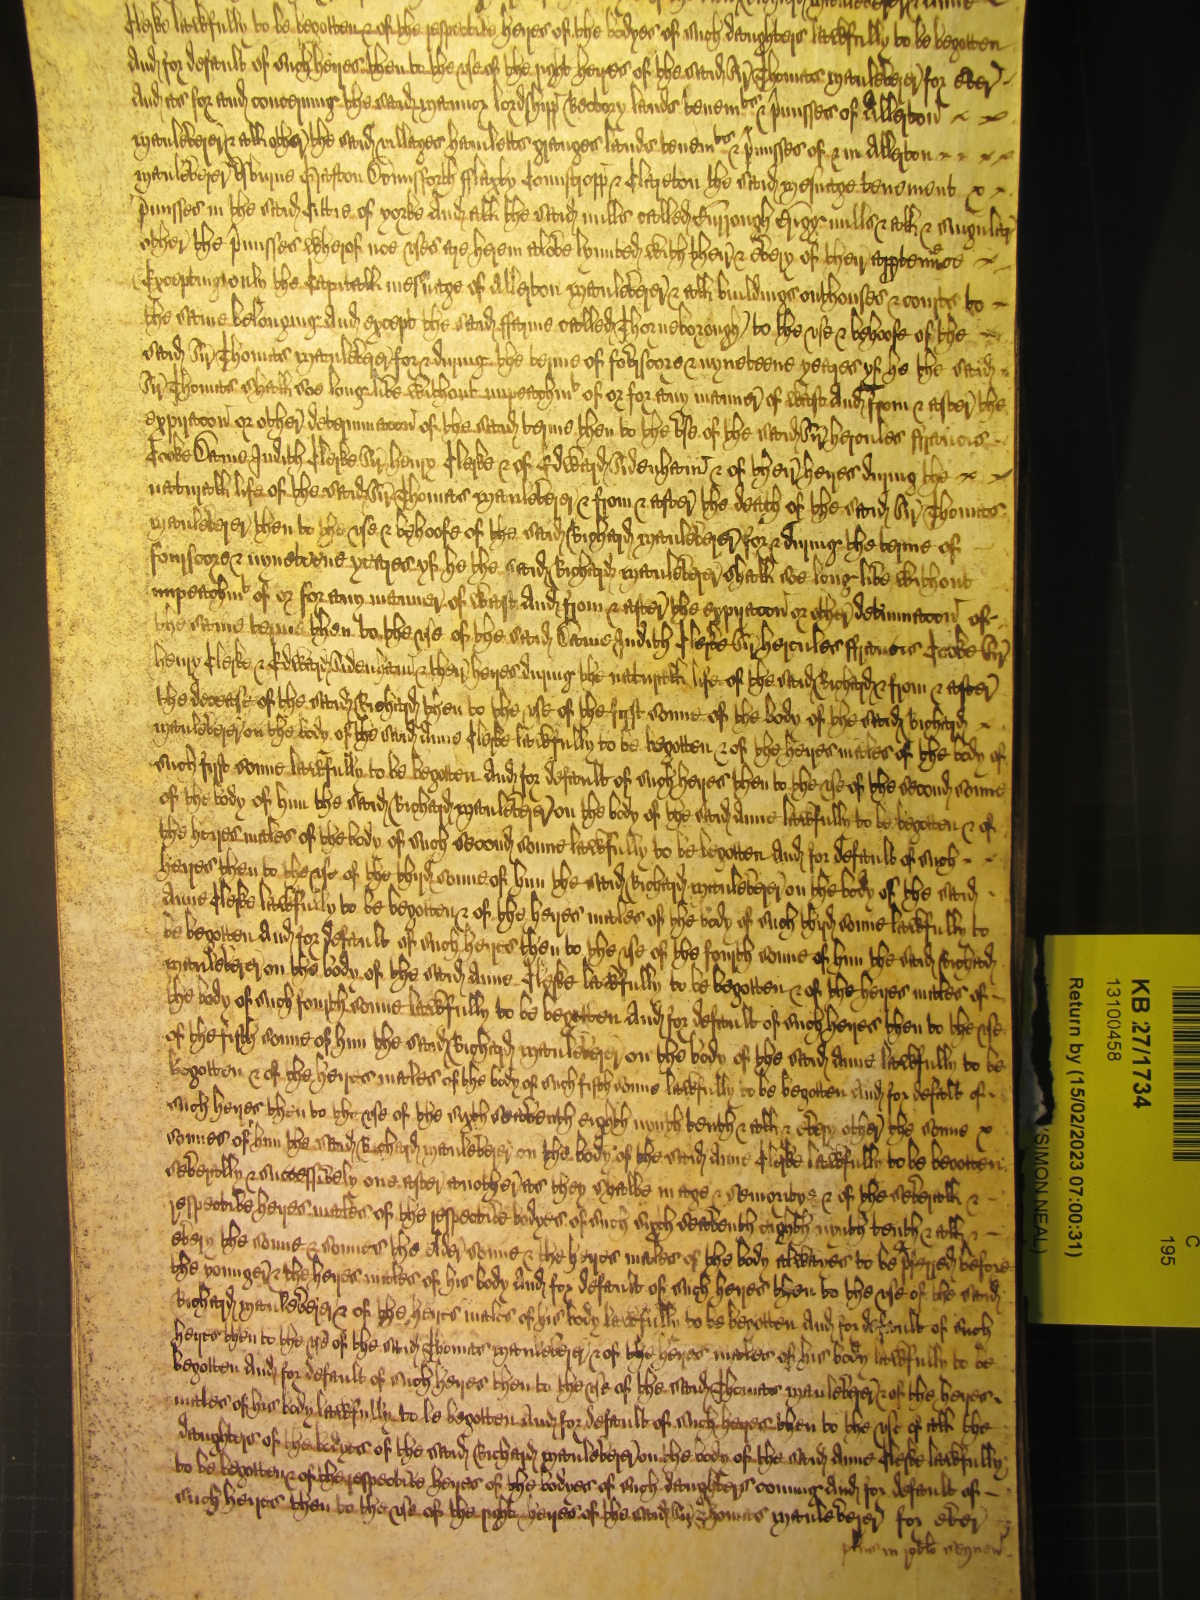 Clerke lawfully to be begotten & of the respective heyres of the bodyes of such daughters lawfully to be begotten
And for default of such heyres then to the use of the right heyres of the said Sir Thomas Mauleverer for ever
And as for and concerning the said mannor lordshipp Rectory lands tenemts & pmisses of Allerton
Mauleverer & all other the said villages hamletts granges lands tenemts & pmisses of & in Allerton
Mauleverer Usburne Grafton Dounsforth fflaxby & Clareton the said mesuage tenement
pmisses in the said Cittie of yorke And all the said mills called mills & all & singuler
other the pmisses wherof noe uses are herein above lymited with their & every of their apptennces
Excepting only the Capitall mesuage of Allerton Mauleverer & all buildings outhouses & courts to
the same belonging And except the said fferme called Thorneborough to the use & behoofe of the
said Sir Thomas Mauleverer for & during the terme of fowrscore & nyneteene yeares yf he the said
Sir Thomas shall soe long live without impeachmt of or for any manner of wast And from & after the
expiracon or other determinacon of the said terme then to the use of the said Sir Hercules ffrancis
Cooke Dame Judith Clerke Sir Henry Clerke & of Edward Sidenham & of their heyres during the
naturall life of the said Sir Thomas Mauleverer & from & after the death of the said Sir Thomas
Mauleverer then to the use & behoofe of the said Richard Mauleverer for & during the terme of
fourscore & nyneteene yeares yf he the said Richard Mauleverer shall soe long live without
impeachmt of or for any manner of wast And from & after the expiracon or other detminacon of
the same terme then to the use of the said Dame Judith Clerke Sir Hercules ffrancis Cooke Sir
Henry Clerke & Edward Sidenham & their heyres during the naturall life of the said Richard & from & after
the decease of the said Richard then to the use of the first sonne of the body of the said Richard
Mauleverer on the body of the said Anne Clerke lawfully to be begotten & of the heyres males of the body of
such first sonne lawfully to be begotten And for default of such heyres then to the use of the second sonne
of the body of him the said Richard Mauleverer on the body of the said Anne lawfully to be begotten & of
the heyres males of the body of such second sonne lawfully to be begotten And for default of such
heyres then to the use of the third sonne of him the said Richard Mauleverer on the body of the said
Anne Clerke lawfully to be begotten & of the heyres males of the body of such third sonne lawfully to
be begotten And for default of such heyres then to the use of the fourth sonne of him the said Richard
Mauleverer on the body of the said Anne Clerke lawfully to be begotten & of the heyres males of
the body of such fourth sonne lawfully to be begotten And for default of such heyres then to the use
of the fifth sonne of him the said Richard Mauleverer on the body of the said Anne lawfully to be
begotten & of the heyres males of the body of such fifth sonne lawfully to be begotten And for default of
such heyres then to the use of the sixth seaventh eighth nynth tenth & all & every other the sonne
sonnes of him the said Richard Mauleverer on the body of the said Anne Clerke lawfully to be begotten
severally & successively one after another as they shalbe in age & seniority & of the severall &
respective heyres males of the respective bodyes of such sixth seaventh eighth nynth tenth & all &
every the sonne & sonnes the elder sonne & the heyres males of his body alwaies to be pferred before
the younger & the heyres males of his body And for default of such heyres then to the use of the said
Richard Mauleverer & of the heyres males of his body lawfully to be begotten And for default of such
heyres then to the use of the said Thomas Mauleverer & of the heyres males of his body lawfully to be
begotten And for default of such heyres then to the use of the said Thomas Mauleverer & of the heyres
males of his body lawfully to be begotten And for default of such heyres then to the use of all the
daughters of the bodyes of the said Richard Mauleverer on the body of the said Anne Clerke lawfully
to be begotten & of the respective heyres of the bodyes of such daughters coming And for default of
such heyres then to the use of the right heyres of the said Sir Thomas Mauleverer for ever
C
195
KB 27/1734
13100458
Return by (15/02/2023 07:00:31)
(SIMON NEAL)